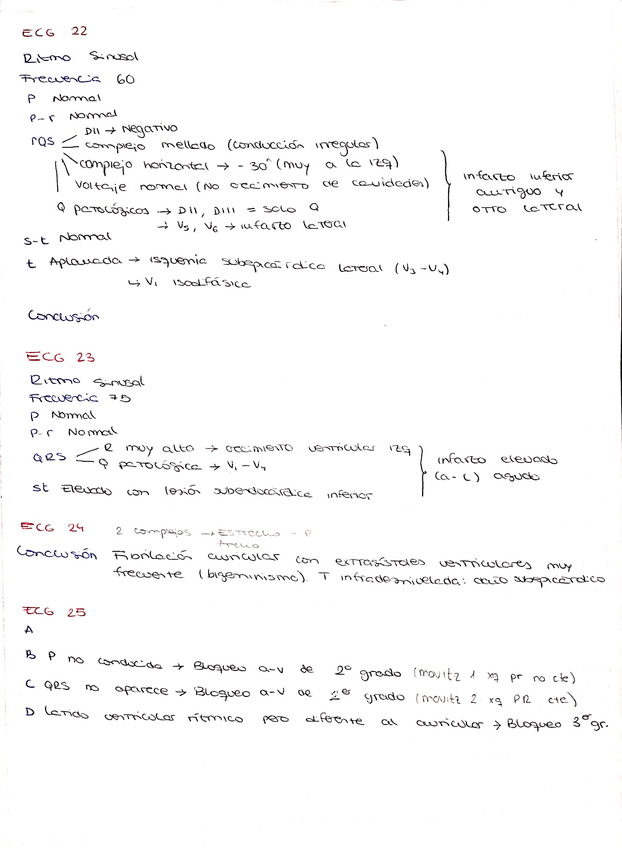 ECG 22
Ritmo Sinusal
Frecuencia 60
P Normal
P-r Normal
DII → Negativo
rQS complejo mellado (conducción irregular)
complejo horizontal → -30° (muy a la izq)
Voltaje normal (No crecimiento de cavidades)
infarto inferior antiguo y otro lateral
Q patológicos → DII, DIII = solo Q
→ V5, V6 → infarto lateral
s-t Normal
t Aplanada → isquemia subepicárdica lateral (V3-V4)
↳ V1 isodifásica
Conclusión
ECG 23
Ritmo sinusal
Frecuencia 75
P Normal
P-r Normal
QRS R muy alto → crecimiento ventricular izq
Q patológica → V1-V4
infarto elevado
(a-L) agudo
st Elevado con lesión subendocárdica inferior
ECG 24 2 complejos → Estrecho - P
Ancho
Conclusión Fibrilación auricular con extrasístoles ventriculares muy
frecuente (bigeminismo). T infradesnivelada: daño subepicárdico
ECG 25
A
B P no conducida → Bloqueo a-v de 2º grado (movitz 1 xq pr no cte)
C QRS no aparece → Bloqueo a-v de 2er grado (movitz 2 xq PR cte)
D latido ventricular rítmico pero diferente al auricular → Bloqueo 3er gr.